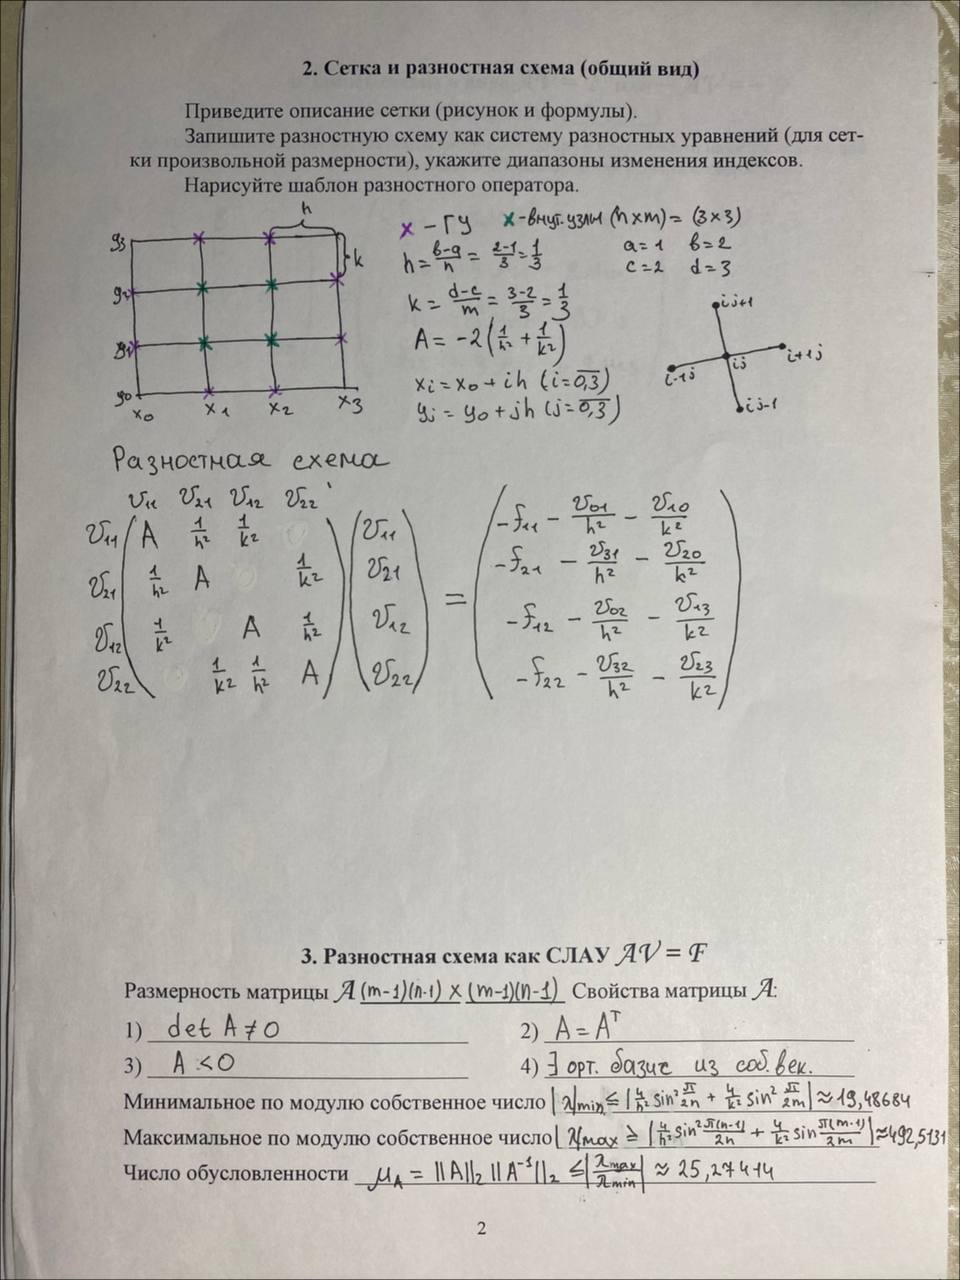 2. Сетка и разностная схема (общий вид)
Приведите описание сетки (рисунок и формулы).
Запишите разностную схему как систему разностных уравнений (для сет-
ки произвольной размерности), укажите диапазоны изменения индексов.
Нарисуйте шаблон разностного оператора.
h
k
y₃
y₂
y₁
y₀
x₀ x₁ x₂ x₃
x - ГУ x - внут. узлы (n×m) = (3×3)
h = (b-a)/n = (2-1)/3 = 1/3 a=1 b=2
c=2 d=3
k = (d-c)/m = (3-2)/3 = 1/3
A = -2(1/h² + 1/k²)
xᵢ = x₀ + ih (i=0,3)
yⱼ = y₀ + jh (j=0,3)
ij+1
i-1j ij i+1j
ij-1
Разностная схема
v₁₁ v₂₁ v₁₂ v₂₂
v₁₁ A 1/h² 1/k² v₁₁ -f₁₁ - v₀₁/h² - v₁₀/k²
v₂₁ 1/h² A 1/k² v₂₁ = -f₂₁ - v₃₁/h² - v₂₀/k²
v₁₂ 1/k² A 1/h² v₁₂ -f₁₂ - v₀₂/h² - v₁₃/k²
v₂₂ 1/k² 1/h² A v₂₂ -f₂₂ - v₃₂/h² - v₂₃/k²
3. Разностная схема как СЛАУ AV = F
Размерность матрицы A (m-1)(n-1) × (m-1)(n-1) Свойства матрицы A:
1) det A ≠ 0 2) A = Aᵀ
3) A < 0 4) ∃ орт. базис из соб. век.
Минимальное по модулю собственное число |λ|min ≤ |4/h² sin² π/2n + 4/k² sin² π/2m| ≈ 19,48684
Максимальное по модулю собственное число |λ|max ≥ |4/h² sin² π(n-1)/2n + 4/k² sin π(m-1)/2m| ≈ 492,5131
Число обусловленности μ_A = ||A||₂ ||A⁻¹||₂ ≤ |λmax/λmin| ≈ 25,27414
2